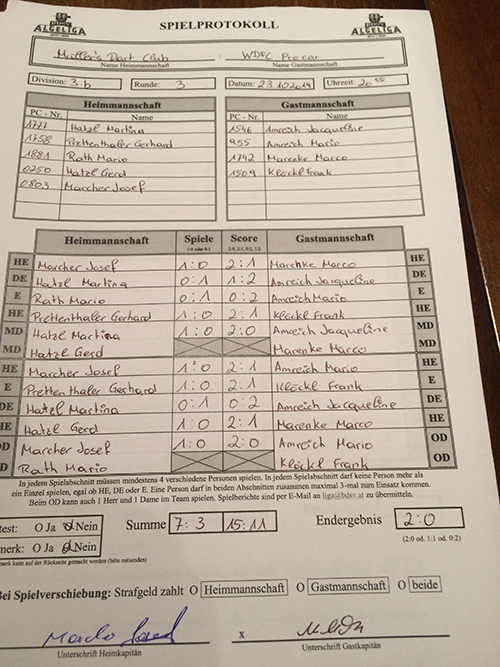 ALGELIGA
SPIELPROTOKOLL
ALGELIGA
Müller's Dart Club : WDFC Procar
Name Heimmannschaft Name Gastmannschaft
Division: 3.b Runde: 3 Datum: 23.10.2014 Uhrzeit: 20 00
Heimmannschaft Gastmannschaft
PC - Nr. Name PC - Nr. Name
1777 Hatzl Martina 1546 Amreich Jacqueline
1758 Prettenthaler Gerhard 955 Amreich Mario
1881 Rath Mario 1742 Marenke Marco
0250 Hatzl Gerd 1509 Klöckl Frank
0803 Marcher Josef
Heimmannschaft Spiele Score Gastmannschaft
1:0 oder 0:1 2:0, 2:1, 0:2, 1:2
HE Marcher Josef 1:0 2:1 Marenke Marco HE
DE Hatzl Martina 0:1 1:2 Amreich Jacqueline DE
E Rath Mario 0:1 0:2 Amreich Mario E
HE Prettenthaler Gerhard 1:0 2:1 Klöckl Frank HE
MD Hatzl Martina 1:0 2:0 Amreich Jacqueline MD
MD Hatzl Gerd Marenke Marco MD
HE Marcher Josef 1:0 2:1 Amreich Mario HE
E Prettenthaler Gerhard 1:0 2:1 Klöckl Frank E
DE Hatzl Martina 0:1 0:2 Amreich Jacqueline DE
HE Hatzl Gerd 1:0 2:1 Marenke Marco HE
OD Marcher Josef 1:0 2:0 Amreich Mario OD
D Rath Mario Klöckl Frank OD
In jedem Spielabschnitt müssen mindestens 4 verschiedene Personen spielen. In jedem Spielabschnitt darf keine Person mehr als
ein Einzel spielen, egal ob HE, DE oder E. Eine Person darf in beiden Abschnitten zusammen maximal 3-mal zum Einsatz kommen.
Beim OD kann auch 1 Herr und 1 Dame im Team spielen. Spielberichte sind per E-Mail an liga@bdsv.at zu übermitteln.
test: O Ja O Nein Summe 7:3 15:11 Endergebnis 2:0
merk: O Ja O Nein (2:0 od. 1:1 od. 0:2)
merk kann auf der Rückseite gemacht werden (bitte mitsenden)
Bei Spielverschiebung: Strafgeld zahlt O Heimmannschaft O Gastmannschaft O beide
x
Unterschrift Heimkapitän Unterschrift Gastkapitän